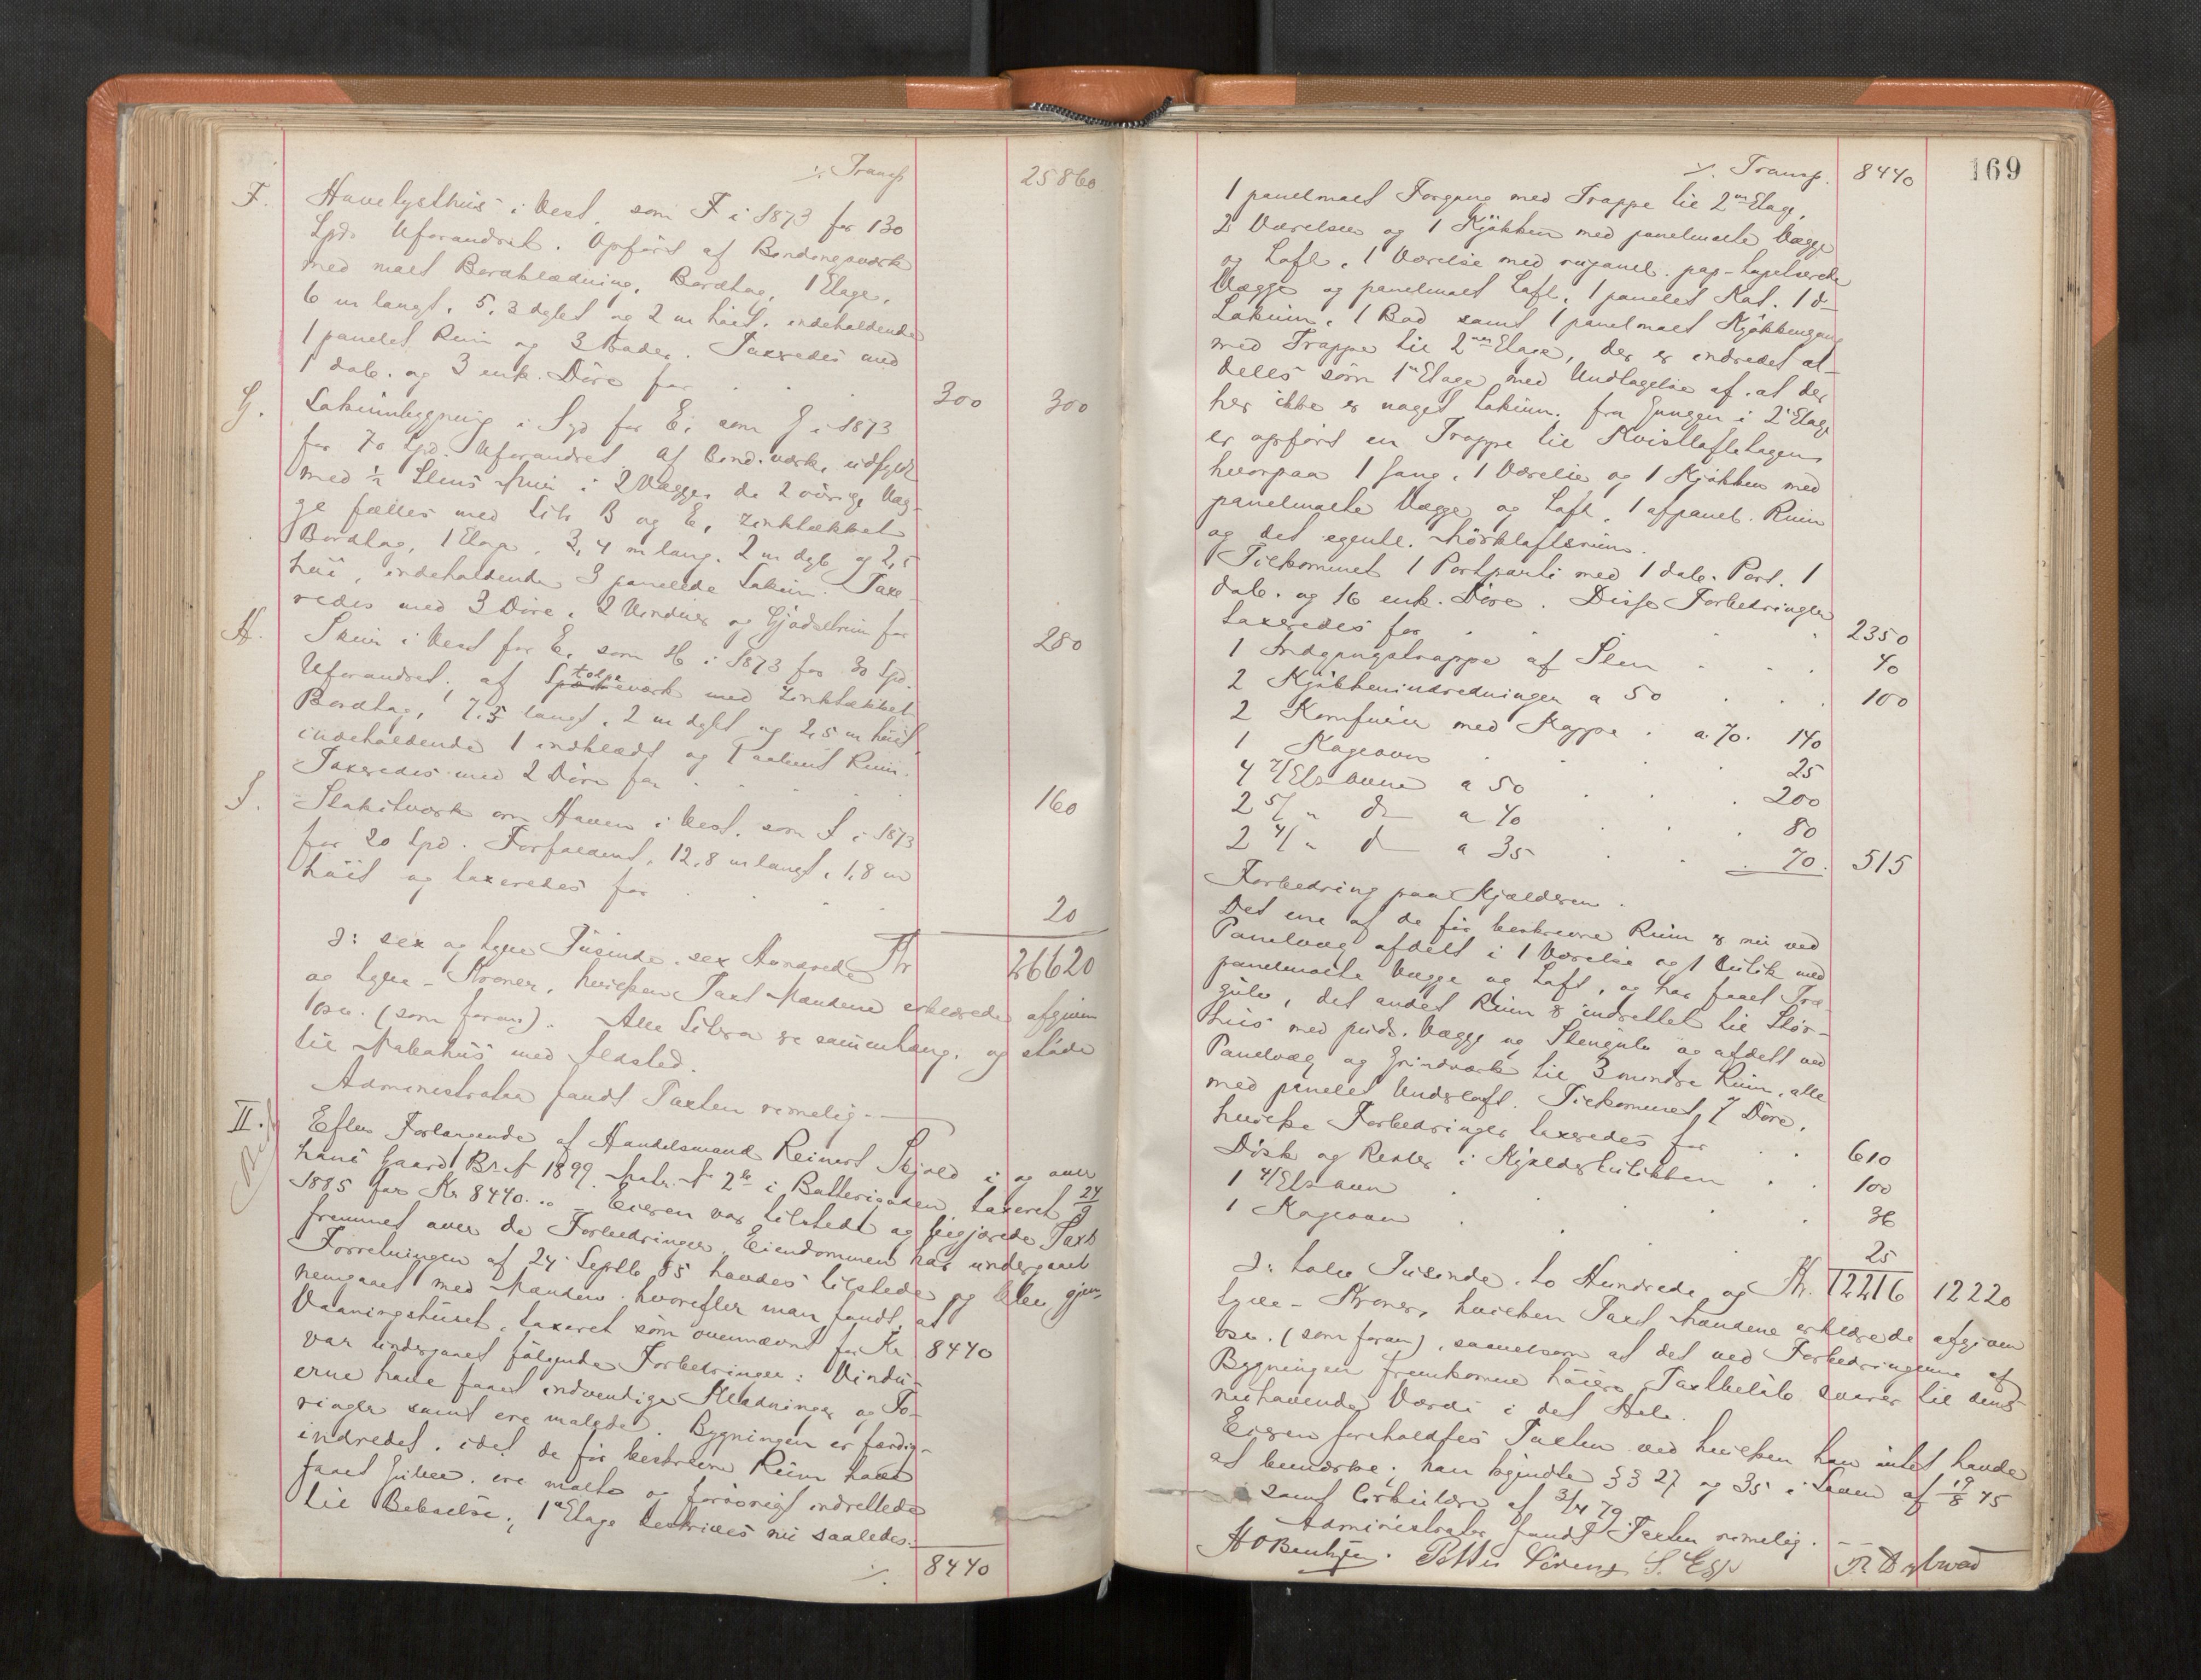 ·/. Transp. 25860.
F. Havelysthus i Vest, som F i 1873 for 130
Spd. Uforandret. Opført af Bindingsværk
med malt Bordklædning, Bordtag, 1 Etage,
6 m langt, 5,3 dybt og 2 m høit, indeholdende
1 panelet Rum og 3 Boder. Taxeredes med
1 dob. og 3 enk. Døre for . . 300 300
G. Lokumbygning i Syd for E, som G i 1873
for 70 Spd. Uforandret af Bind.værk, udfyldt
med ½ Stens Mur i 2 Vægge, de 2 øvrige Væg-
ge fælles med Litr B og E, zinktækket
Bordtag, 1 Etage, 3,4 m lang, 2 m dyb og 2,5
høi, indeholdende 3 panelede Lokum. Taxe-
redes med 3 Døre, 2 Vinduer og Gjødselrum for 280
H. Skur i Vest for E, som H i 1873 for 30 Spd.
Uforandret; af Stolpeværk med zinktækket
Bordtag, 7,5 langt, 2 m dybt og 2,5 m høit,
indeholdende 1 indklædt og 1 aabent Rum.
Taxeredes med 2 Døre for . . . 160
I. Stakitværk om Haven i Vest, som I i 1873
for 20 Spd. Forfaldent, 12,8 m langt, 1,8 m
høit og taxeredes for . . . 20
ɔ: sex og tyve Tusinde, sex Hundrede Kr. 26620
og tyve - Kroner, hvilken Taxt Mændene erklærede afgiven
osv. (som foran). Alle Litra er sammenhæng. og støde
til Nabohus med Ildsted.
Administrator fandt Taxten rimelig. —
II. Efter Forlangende af Handelsmand Reinert Skjold i og over
hans Gaard Br. № 1899. Matr. № 2 i Batterigaden, taxeret 24/9
1885 for Kr 8440.00 – Eieren var tilstede og begjærede Taxt
fremmet over de Forbedringer, Eiendommen har undergaaet
Forretningen af 24 Septb 85 havdes tilstede og blev gjen-
nemgaaet med Manden, hvorefter man fandt, at
Vaaningshuset, taxeret som ovennævnt for Kr 8440
var undergaaet følgende Forbedringer: Vindu-
erne have faaet indvendige Klædninger og Fo-
ringer samt ere malede. Bygningen er færdig-
indredet, idet de før beskrevne Rum have
faaet Gulve, ere malte og forøvrigt indrettede
til Beboelse; 1ste Etage beskrives nu saaledes:
·/. 8440
·/. Transp. 8440 169
1 panelmalt Forgang med Trappe til 2den Etage,
2 Værelser og 1 Kjøkken med panelmalte Vægge
og Loft, 1 Værelse med rupanel. pap-tapetserede
Vægge og panelmalt Loft, 1 panelet Kot, 1 do
Lokum, 1 Bod samt 1 panelmalt Kjøkkengang
med Trappe til 2den Etage, der er indredet al-
deles som 1ste Etage med Undtagelse af, at der
her ikke er noget Lokum. Fra Gangen i 2den Etage
er opført en Trappe til Kvistloftetagen,
hvorpaa 1 Gang, 1 Værelse og 1 Kjøkken med
panelmalte Vægge og Loft, 1 afpanel. Rum
og det egentl. Mørkloftsrum.
Tilkommet 1 Portparti med 1 dob. Port, 1
dob. og 16 enk. Døre. Disse Forbedringer
taxeredes for . . . . 2350
1 Indgangstrappe af Sten . . . 40
2 Kjøkkenindredninger a 50 . . . 100
2 Komfurer med Kappe . a 70. 140
1 Kogeovn . . . 25
4 7/Els ovne a 50 . . . 200
2 5/ " do a 40 . . . 80
2 4/ " do a 35 . . . 70. 515
Forbedring paa Kjælderen.
Det ene af de før beskrevne Rum er nu ved
Panelvæg afdelt i 1 Værelse og 1 Butik med
panelmalte Vægge og Loft, og har faaet Træ-
gulv, det andet Rum er indrettet til Bryg-
hus med puds. Vægge og Stengulv og afdelt ved
Panelvæg og Grindværk til 3 mindre Rum, alle
med panelet Underloft. Tilkommet 7 Døre,
hvilke Forbedringer taxeredes for . . 610
Disk og Reoler i Kjælderbutikken . . 100
1 4/Els ovn . . . . 36
1 Kogeovn . . . . 25
ɔ: tolv Tusinde, to Hundrede og Kr. 12216 12220
tyve - Kroner, hvilken Taxt Mændene erklærede afgiven
osv. (som foran), saavelsom at det ved Forbedringerne af
Bygningen fremkomne høiere Taxtbeløb svarer til dens
nuhavende Værdi i det Hele.
Eieren foreholdtes Taxten ved hvilken han intet havde
at bemærke; han kjendte §§ 27 og 35 i Loven af 19/8 45
samt Cirkulære af 3/4 79.
Administrator fandt Taxten rimelig. —
H O Bentzen. Petter Sørensen S. R Dybwad